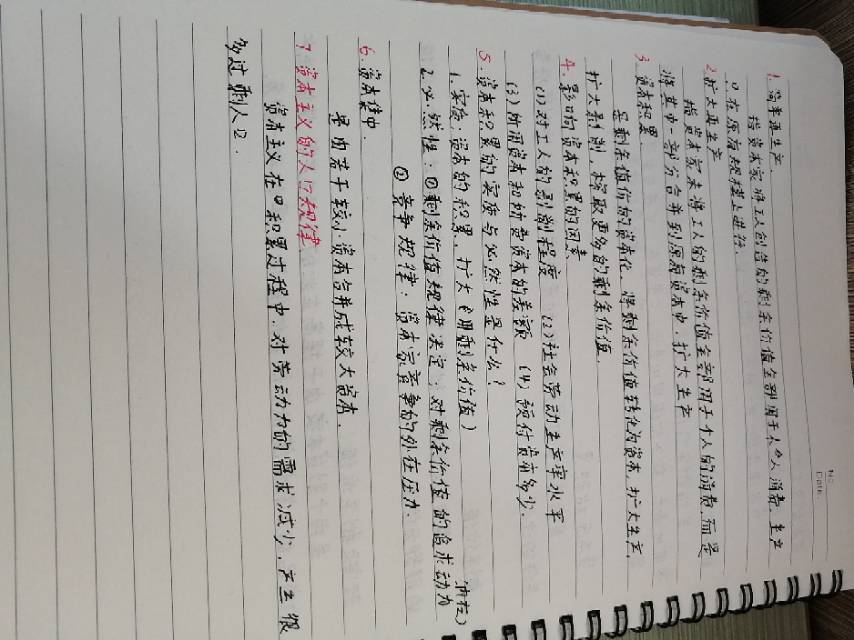 No.
Date.
1. 简单再生产.
指资本家将工人创造的剩余价值全部用于个人消费,生产
只在原有规模上进行.
2 扩大再生产
指资本家未将工人的剩余价值全部用于个人的消费,而是
将其中一部分合并到原有资本中,扩大生产
3. 资本积累
是剩余价值的资本化,将剩余价值转化为资本,扩大生产,
扩大剥削,榨取更多的剩余价值.
4. 影响资本积累的因素
(1)对工人的剥削程度 (2)社会劳动生产率水平
(3)所用资本和所费资本的差额 (4)预付资本多少.
5. 资本积累的实质与必然性是什么?
1. 实质:资本的积累,扩大(用剩余价值)
2. 必然性:①剩余价值规律决定:对剩余价值的追求动力(内在)
② 竞争规律:资本家竞争的外在压力.
6. 资本集中.
是由若干较小资本合并成较大资本.
7. 资本主义的人口规律
资本主义在积累过程中,对劳动力的需求减少,产生很
多过剩人口.